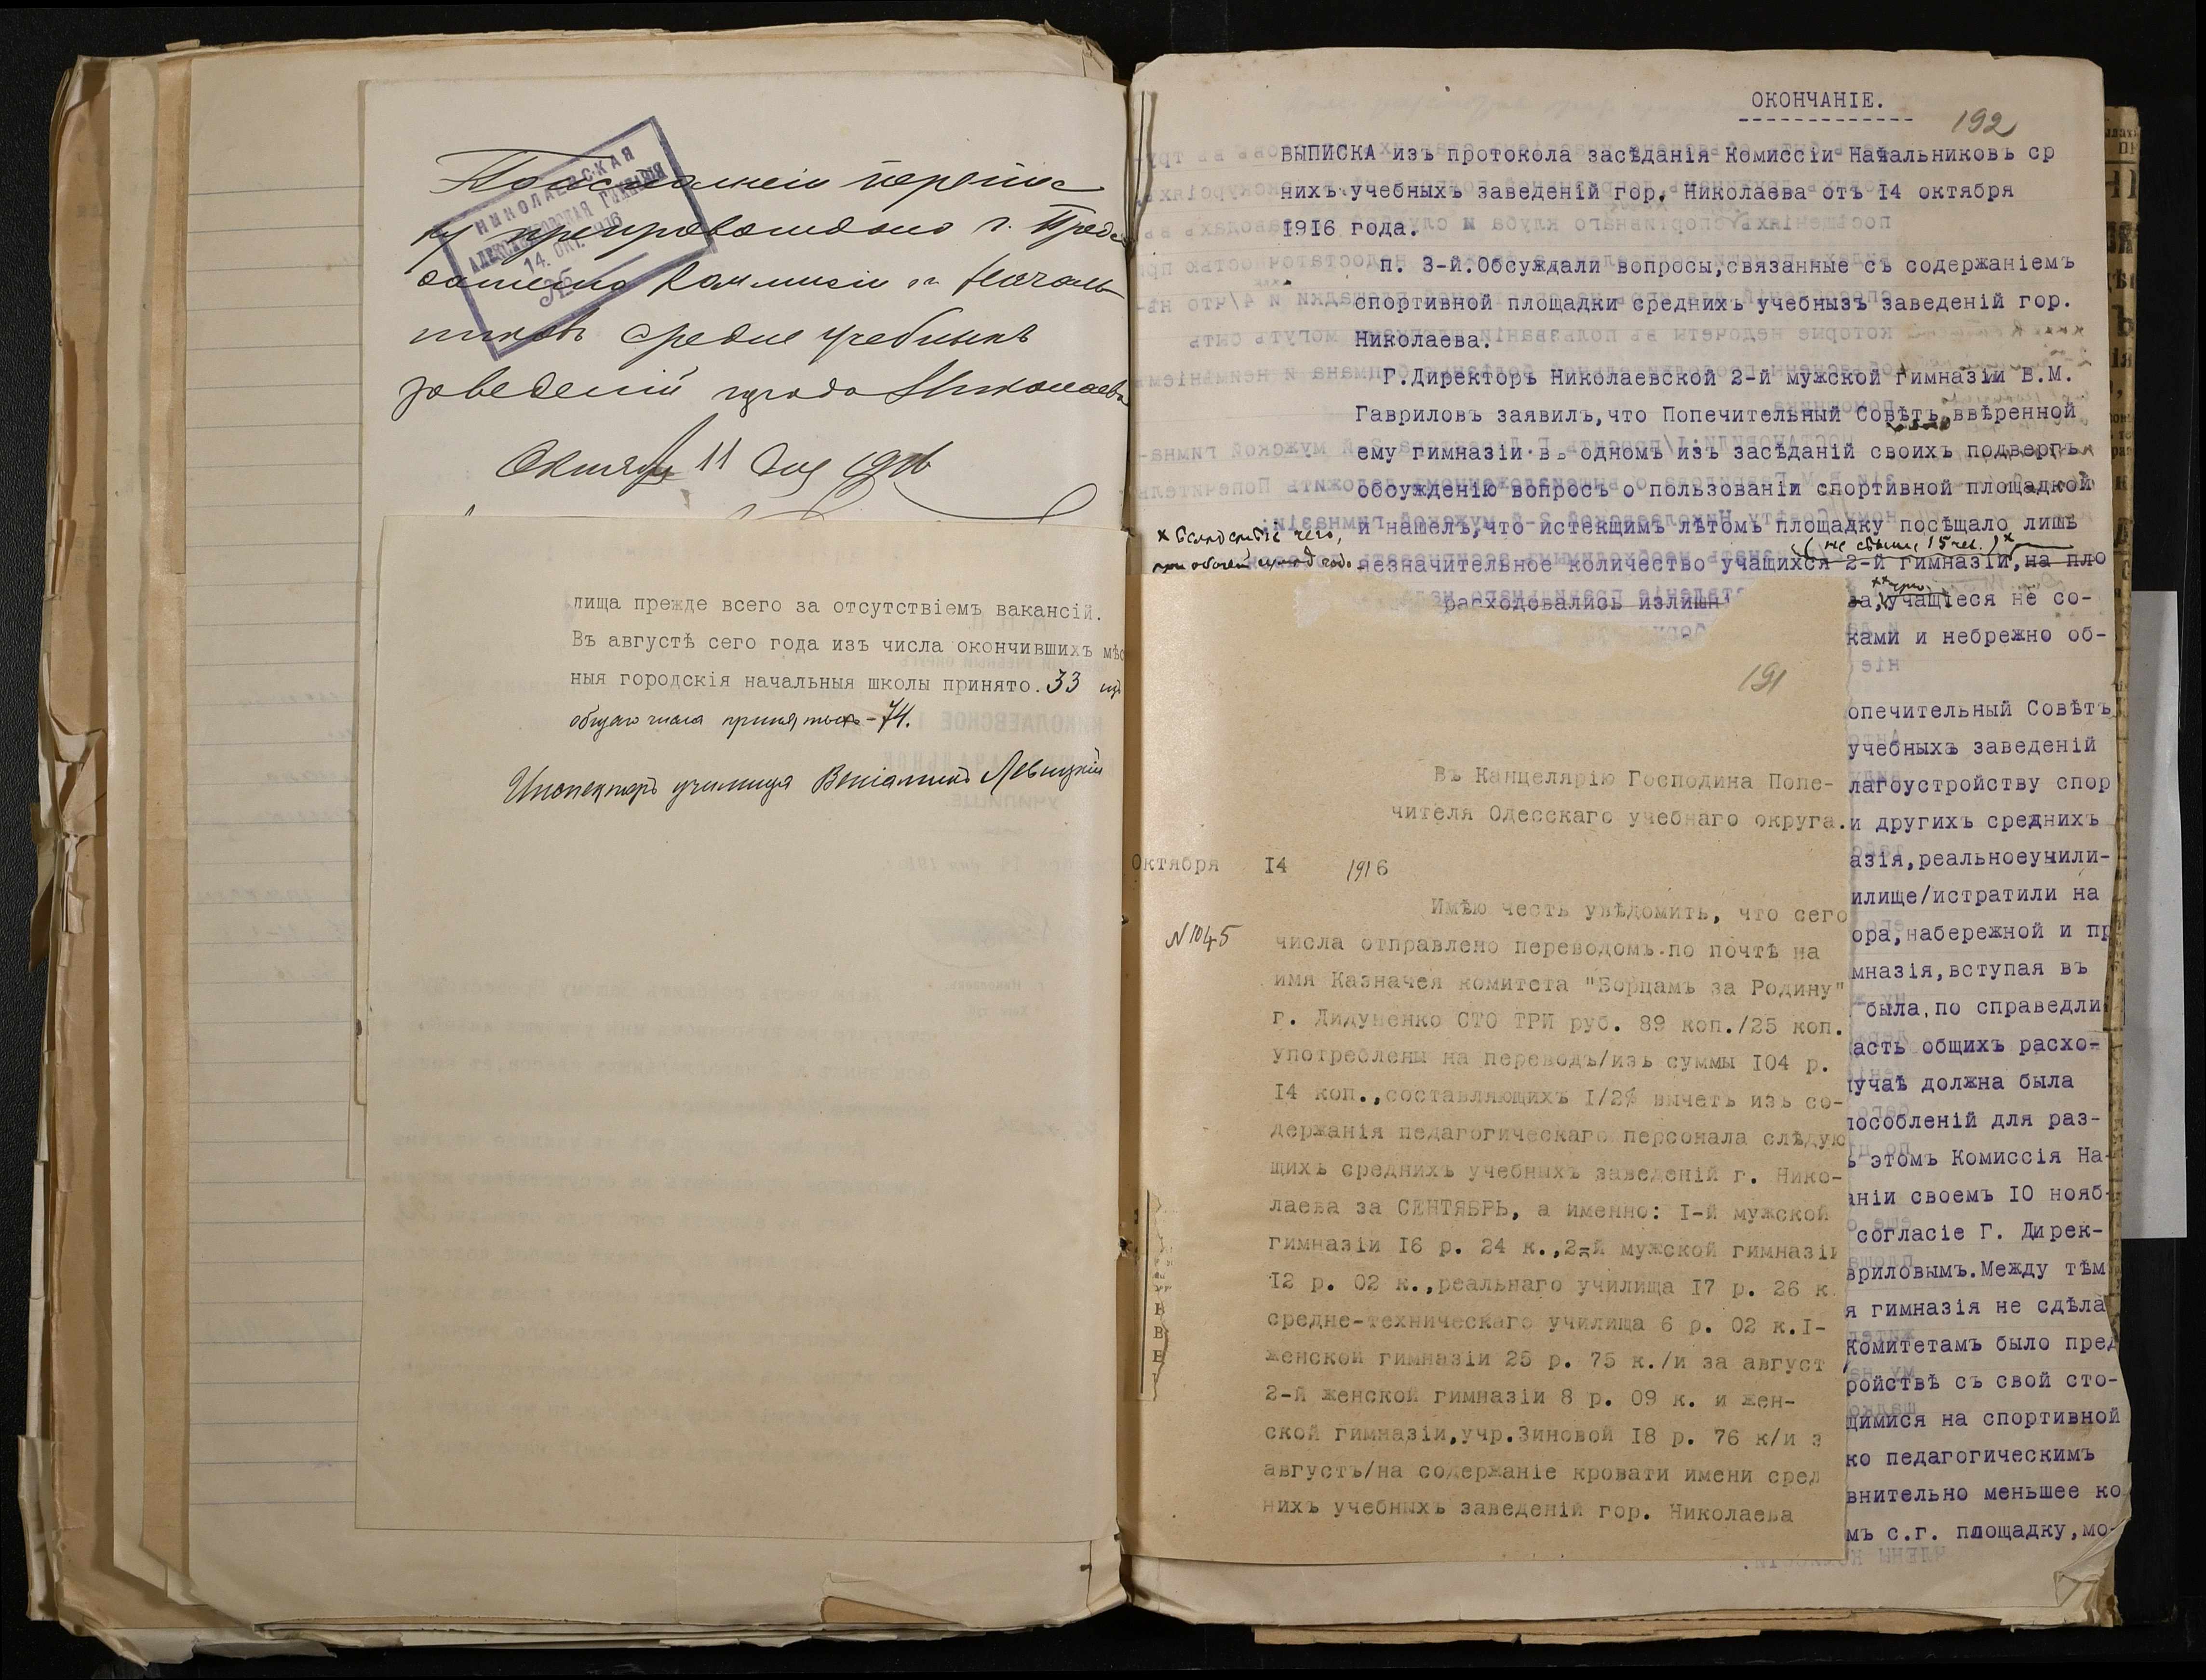 НИКОЛАЕВСКАЯ
АЛЕКСАНДРОВСКАЯ ГИМНАЗІЯ
14. ОКТ. 1916
№
г. Предсѣ
дателю Коммисіи гг. Началь
никовъ средне учебныхъ
заведеній города Николаева
Октября 11 дня 1916
лища прежде всего за отсутствіемъ вакансій.
Въ августѣ сего года изъ числа окончившихъ мѣс
ныя городскія начальныя школы принято. 33 из
общаго числа принятыхъ - 74.
Инспекторъ училища Веніаминъ Левицкій
ОКОНЧАНІЕ.
192
ВЫПИСКА изъ протокола засѣданія Комиссіи Начальниковъ ср
нихъ учебныхъ заведеній гор. Николаева отъ I4 октября
I9I6 года.
п. 3-й. Обсуждали вопросы, связанные съ содержаніемъ
спортивной площадки среднихъ учебнызъ заведеній гор.
Николаева.
Г. Директоръ Николаевской 2-й мужской гимназіи В.М.
Гавриловъ заявилъ, что Попечительный Совѣтъ ввѣренной
ему гимназіи въ одномъ изъ засѣданій своихъ подвергъ
обсужденію вопросъ о пользованіи спортивной площадкой
и нашелъ, что истекщимъ лѣтомъ площадку посѣщало лишь
(не свыше 15 чел.) ×
× Вслѣдствіе чего,
незначительное количество учащихся 2-й гимназіи, на пло
расходовались излишн
за, учащіеся не со-
ками и небрежно об-
опечительный Совѣтъ
учебныхъ заведеній
лагоустройству спор
и другихъ среднихъ
азія, реальноеучили-
илище/истратили на
ора, набережной и пр
мназія, вступая въ
была, по справедли
асть общихъ расхо-
лучаѣ должна была
пособленій для раз-
ъ этомъ Комиссія На-
аніи своемъ I0 нояб-
согласіе Г. Дирек-
вриловымъ. Между тѣм
я гимназія не сдѣла
Комитетамъ было пред
ройствѣ съ свой сто-
щимися на спортивной
ко педагогическимъ
внительно меньшее ко
мъ с.г. площадку, мо-
191
Въ Канцелярію Господина Попе-
чителя Одесскаго учебнаго округа.
Октября I4 1916
N 1045
Имѣю честь увѣдомить, что сего
числа отправлено переводомъ по почтѣ на
имя Казначея комитета "Борцамъ за Родину"
г. Дидуненко СТО ТРИ руб. 89 коп./25 коп.
употреблены на переводъ/изъ суммы I04 р.
I4 коп., составляющихъ I/2% вычетъ изъ со-
держанія педагогическаго персонала слѣдую
щихъ среднихъ учебныхъ заведеній г. Нико-
лаева за СЕНТЯБРЬ, а именно: I-й мужской
гимназіи I6 р. 24 к., 2-й мужской гимназіи
I2 р. 02 к., реальнаго училища I7 р. 26 к
средне-техническаго училища 6 р. 02 к. I-
женской гимназіи 25 р. 75 к./и за август
2-й женской гимназіи 8 р. 09 к. и жен-
ской гимназіи, учр. Зиновой I8 р. 76 к/и з
августъ/на содержаніе кровати имени сред
нихъ учебныхъ заведеній гор. Николаева